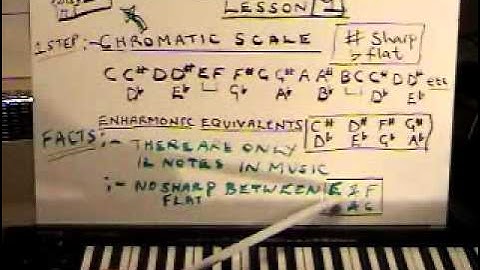 LESSON 1
1 STEP:- CHROMATIC SCALE
# Sharp
b flat
C C# D D# E F F# G G# A A# B C C# D D# etc
Db Eb Gb Ab Bb Db Eb
ENHARMONIC EQUIVALENTS
C# D# F# G#
Db Eb Gb Ab
FACTS:- THERE ARE ONLY
12 NOTES IN MUSIC
:- NO SHARP BETWEEN E & F
FLAT